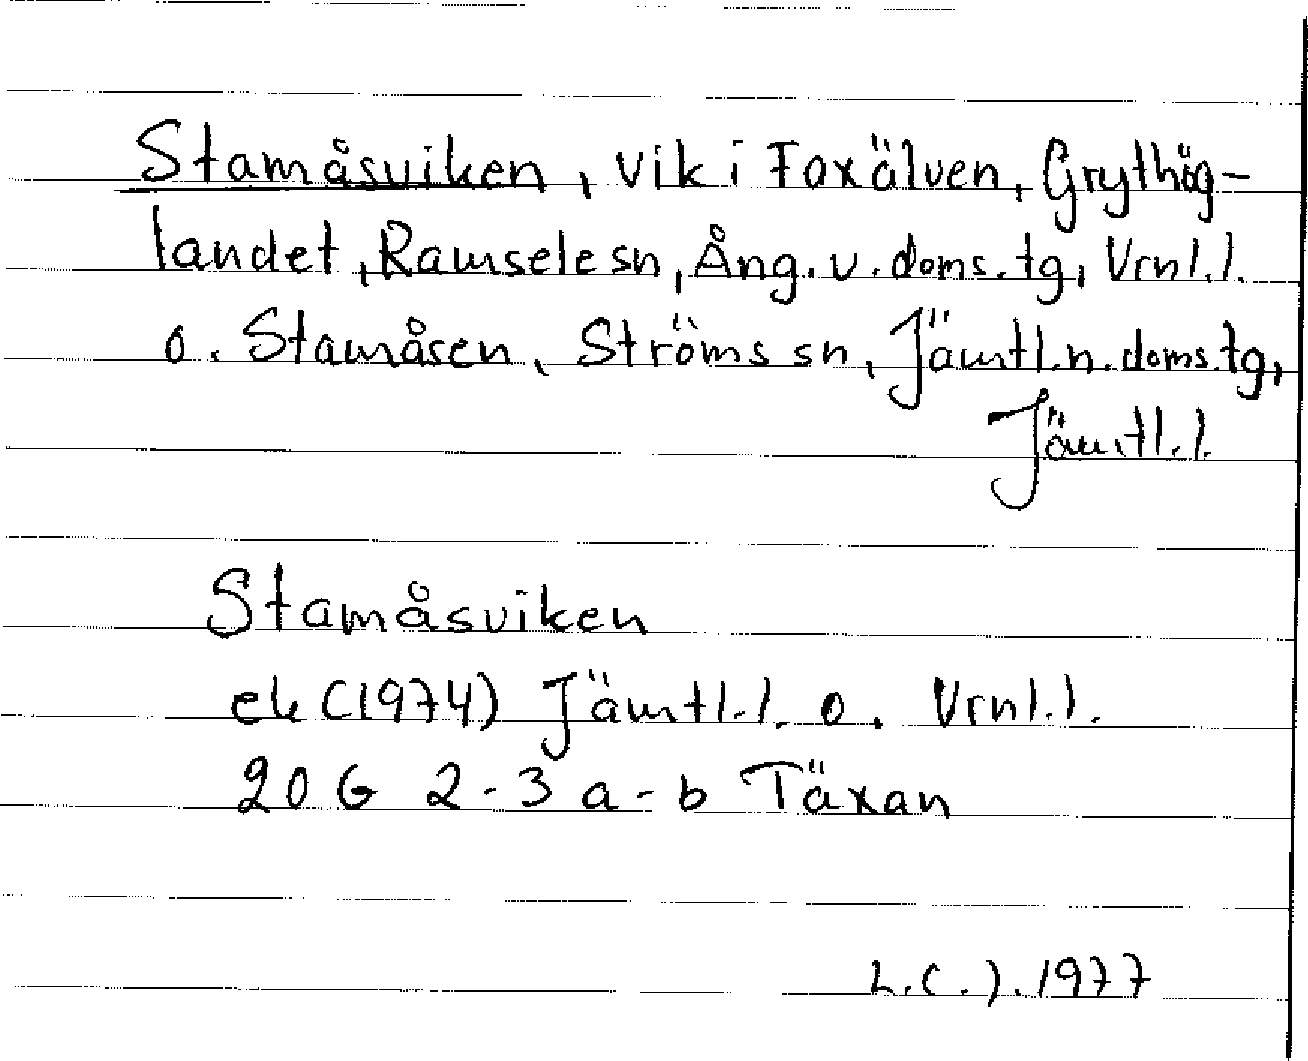 Stamåsviken, vik i Faxälven, Grythög-
landet, Ramsele sn, Ång. v. doms. tg, Vrnl. l.
o. Stamåsen, Ströms sn, Jämtl. n. doms. tg,
Jämtl. l.
Stamåsviken
ek (1974) Jämtl. l. o. Vrnl. l.
20 G 2-3 a-b Täxan
L.C.J. 1977